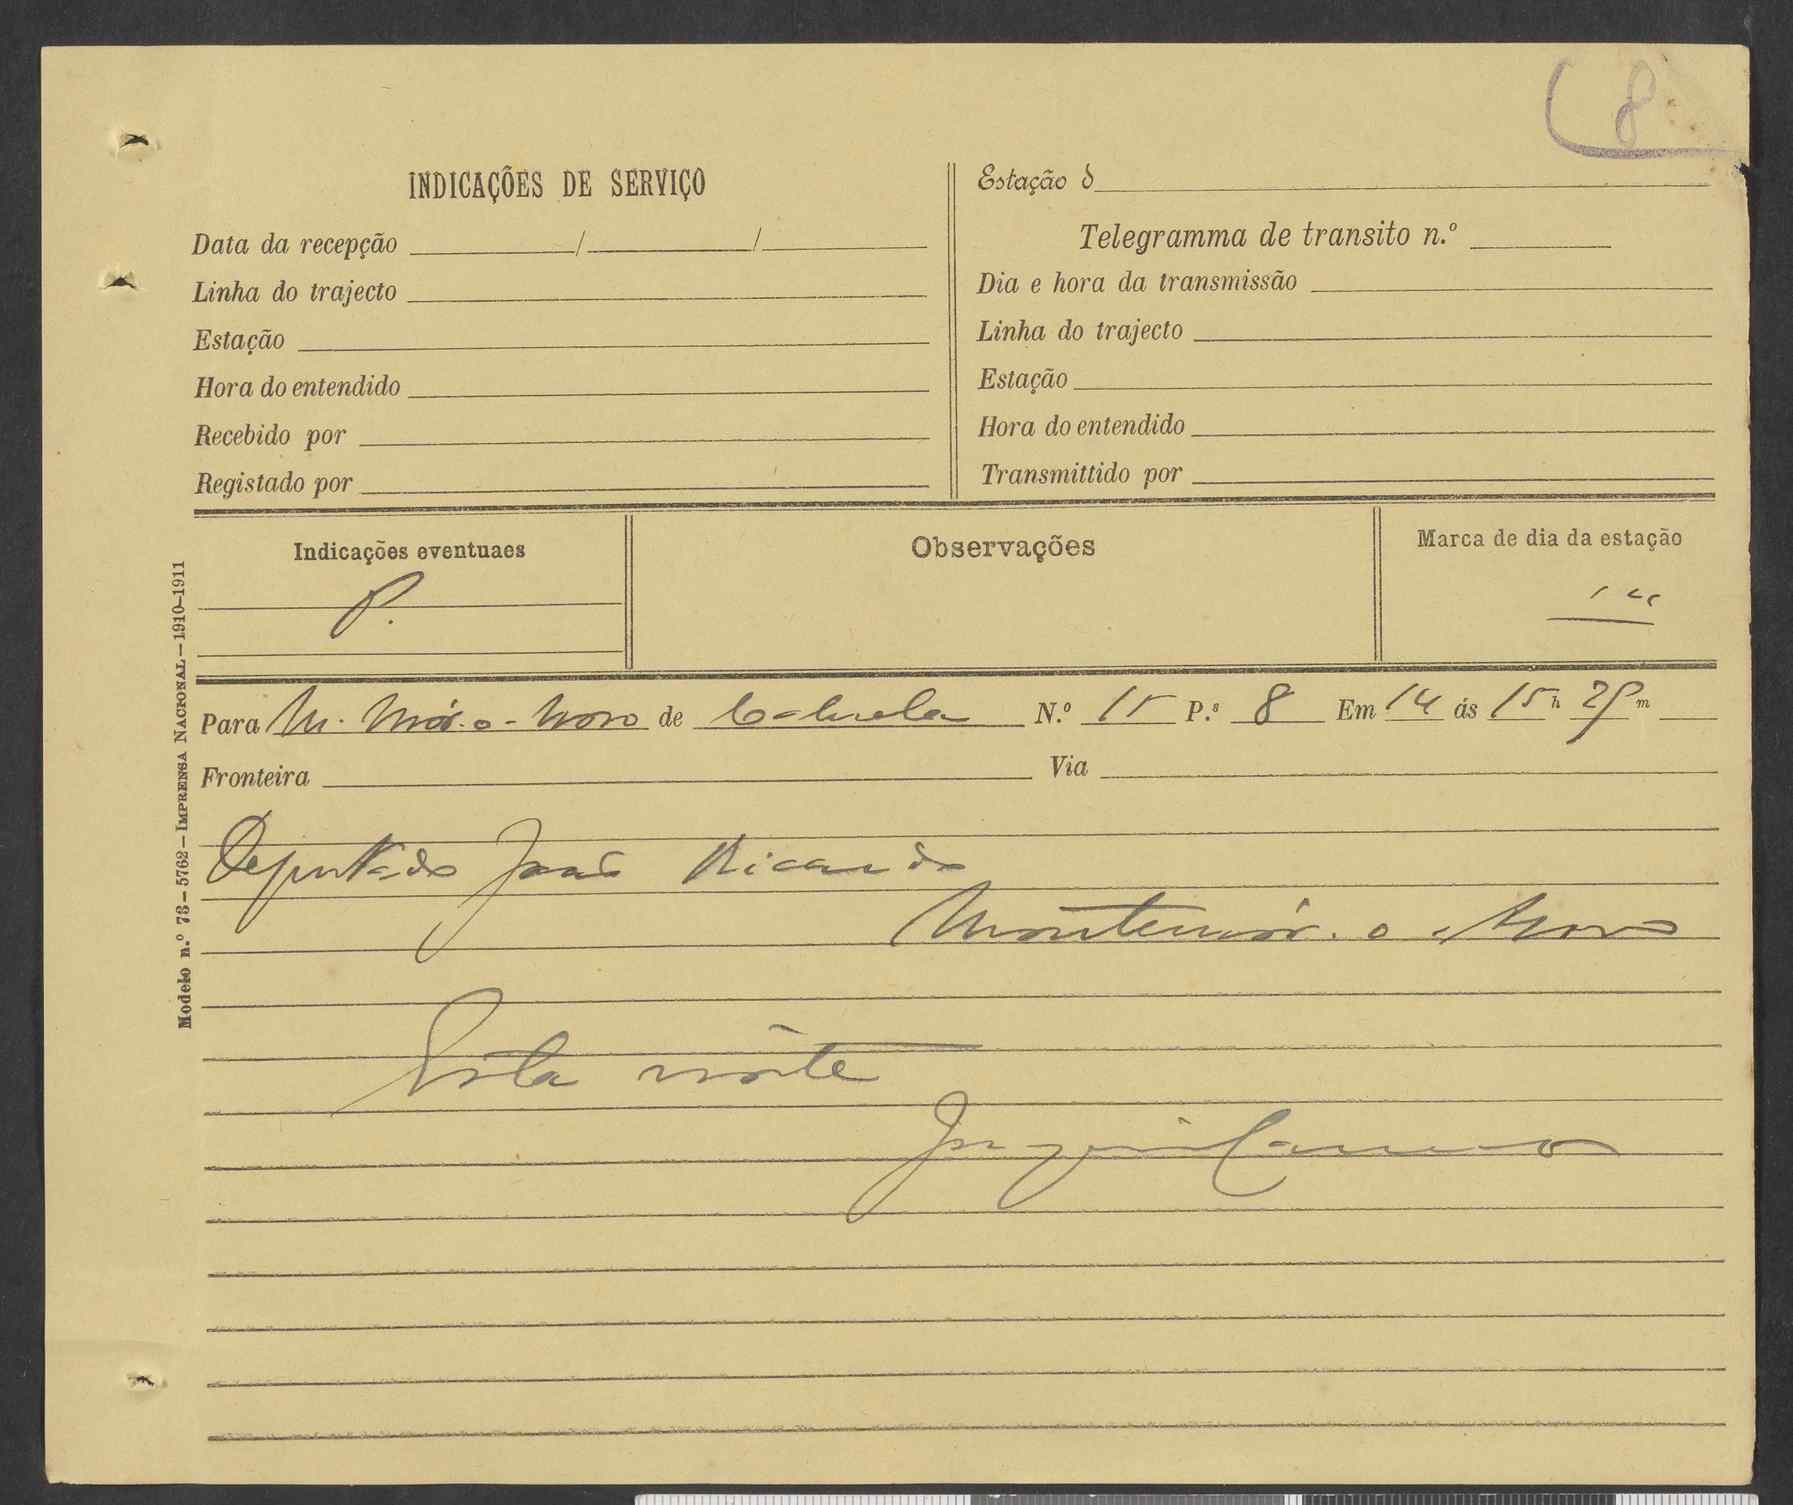 8
INDICAÇÕES DE SERVIÇO
Data da recepção / /
Linha do trajecto
Estação
Hora do entendido
Recebido por
Registado por
Estação d
Telegramma de transito n.º
Dia e hora da transmissão
Linha do trajecto
Estação
Hora do entendido
Transmittido por
Indicações eventuaes
P.
Observações
Marca de dia da estação
Modelo n.º 73 – 5762 – IMPRENSA NACIONAL – 1910-1911
Para M. Mór-o-Novo de N.º 15 P.ª 8 Em 14 ás 15 h 25 m
Fronteira Via
Deputado João Ricardo
Montemór-o-Novo
Esta noite